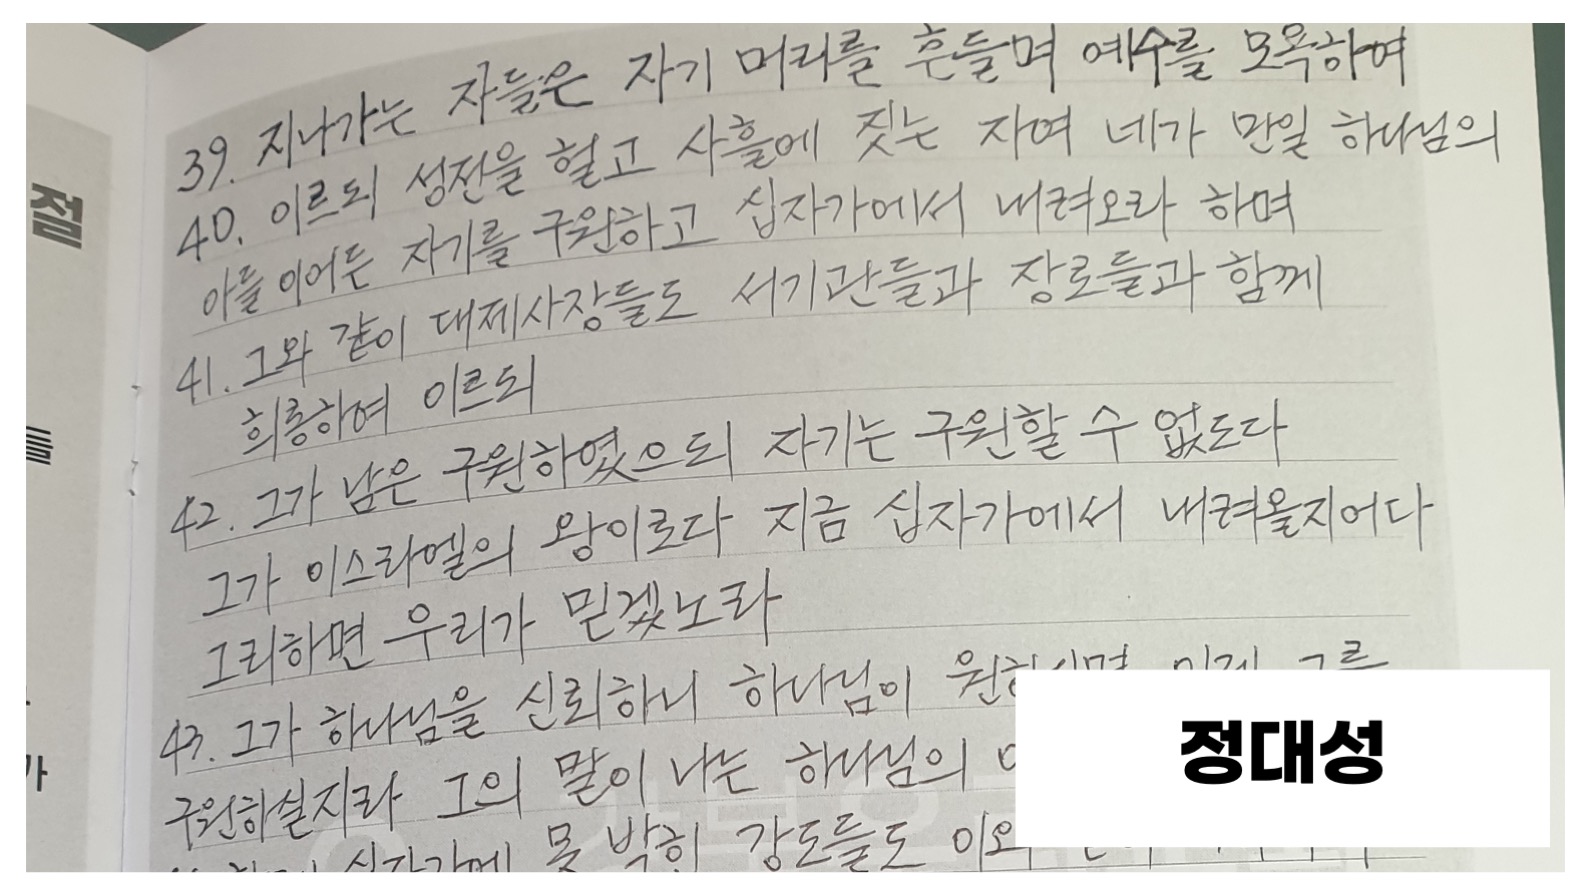 절
들
가
39. 지나가는 자들은 자기 머리를 흔들며 예수를 모욕하여
40. 이르되 성전을 헐고 사흘에 짓는 자여 네가 만일 하나님의
아들이어든 자기를 구원하고 십자가에서 내려오라 하며
41. 그와 같이 대제사장들도 서기관들과 장로들과 함께
희롱하여 이르되
42. 그가 남은 구원하였으되 자기는 구원할 수 없도다
그가 이스라엘의 왕이로다 지금 십자가에서 내려올지어다
그리하면 우리가 믿겠노라
43. 그가 하나님을 신뢰하니 하나님이
구원하실지라 그의 말이 나는 하나님의
십자가에 못 박히 강도들도
정대성